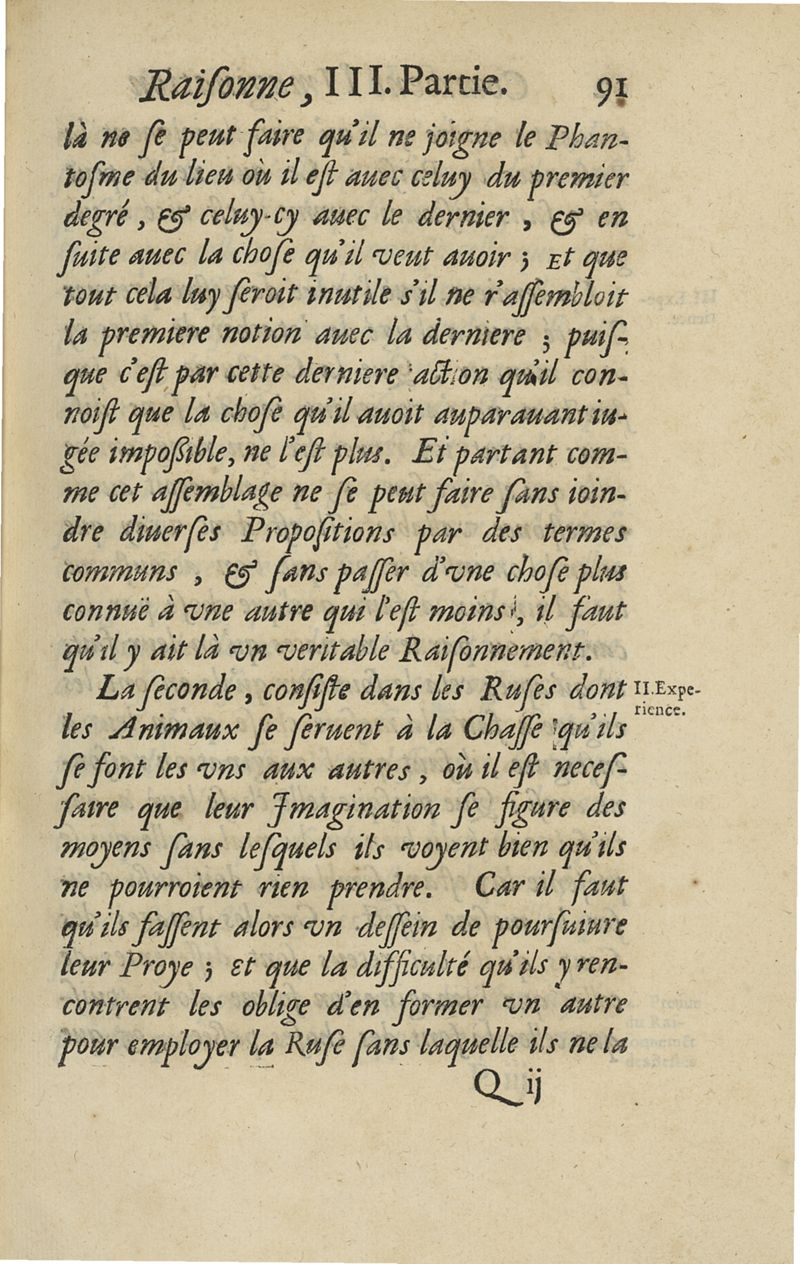 Raiſonne, III. Partie. 91
là ne ſe peut faire qu'il ne joigne le Phan-
toſme du lieu où il eſt auec celuy du premier
degré, & celuy-cy auec le dernier, & en
ſuite auec la choſe qu'il veut auoir; Et que
tout cela luy ſeroit inutile s'il ne r'aſſembloit
la premiere notion auec la derniere; puiſ-
que c'eſt par cette derniere action qu'il con-
noiſt que la choſe qu'il auoit auparauant iu-
gée impoſſible, ne l'eſt plus. Et partant com-
me cet aſſemblage ne ſe peut faire ſans ioin-
dre diuerſes Propoſitions par des termes
communs, & ſans paſſer d'vne choſe plus
connuë à vne autre qui l'eſt moins, il faut
qu'il y ait là vn veritable Raiſonnement.
La ſeconde, conſiſte dans les Ruſes dont
II. Expe-
rience.
les Animaux ſe ſeruent à la Chaſſe qu'ils
ſe font les vns aux autres, où il eſt neceſ-
ſaire que leur Imagination ſe figure des
moyens ſans leſquels ils voyent bien qu'ils
ne pourroient rien prendre. Car il faut
qu'ils faſſent alors vn deſſein de pourſuiure
leur Proye; et que la difficulté qu'ils y ren-
contrent les oblige d'en former vn autre
pour employer la Ruſe ſans laquelle ils ne la
Q ij